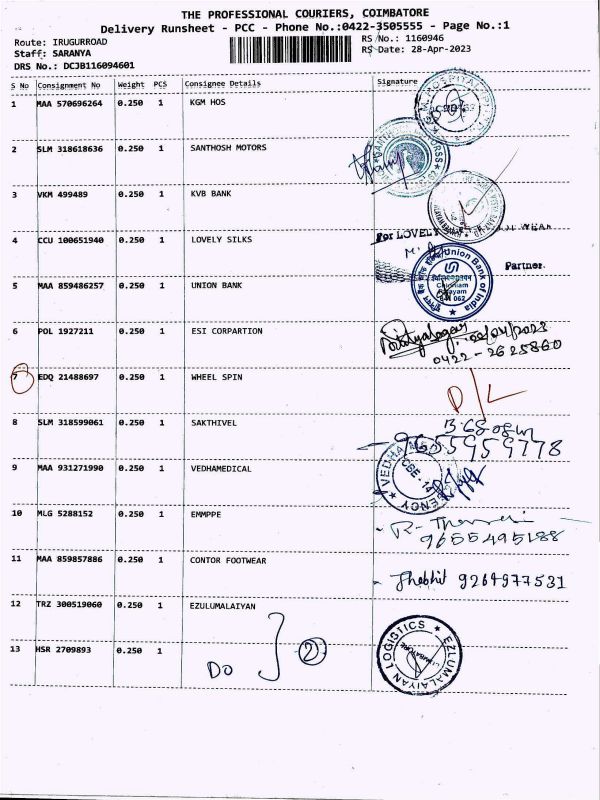 THE PROFESSIONAL COURIERS, COIMBATORE
Delivery Runsheet - PCC - Phone No.:0422-3505555 - Page No.:1
Route: IRUGURROAD RS No.: 1160946
Staff: SARANYA RS Date: 28-Apr-2023
DRS No.: DCJB116094601
S No Consignment No Weight PCS Consignee Details Signature
1 MAA 570696264 0.250 1 KGM HOS
2 SLM 318618636 0.250 1 SANTHOSH MOTORS
3 VKM 499489 0.250 1 KVB BANK
4 CCU 100651940 0.250 1 LOVELY SILKS
For LOVELY
Partner
5 MAA 859486257 0.250 1 UNION BANK
Union Bank of India
6 POL 1927211 0.250 1 ESI CORPARTION
0422-2625860
7 EDQ 21488697 0.250 1 WHEEL SPIN
D/L
8 SLM 318599061 0.250 1 SAKTHIVEL
9655959778
9 MAA 931271990 0.250 1 VEDHAMEDICAL
CBE-14
10 MLG 5288152 0.250 1 EMMPPE
9655495188
11 MAA 859857886 0.250 1 CONTOR FOOTWEAR
9264977531
12 TRZ 300519060 0.250 1 EZULUMALAIYAN
13 HSR 2709893 0.250 1 DO 2
EZLUMALAIYAN LOGISTICS